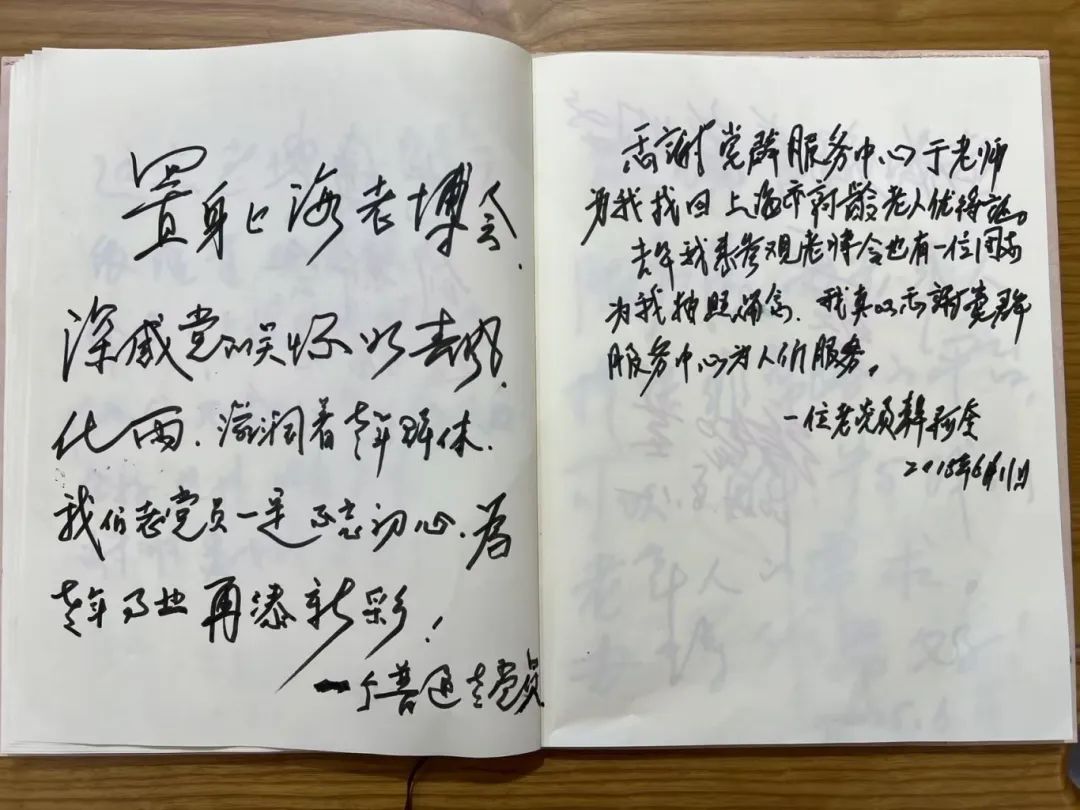 置身上海老博会，
深感党的关怀如春风
化雨，滋润着老年群体，
我们老党员一定不忘初心，为
老年事业再添新彩！
一个普通老党员
感謝党群服务中心于老师
为我找回上海市高龄老人优待证。
去年我来参观老博会也有一位同志
为我拍照留念，我真心感謝党群
服务中心为人们服务。
一位老党员韩
2018年6月11日